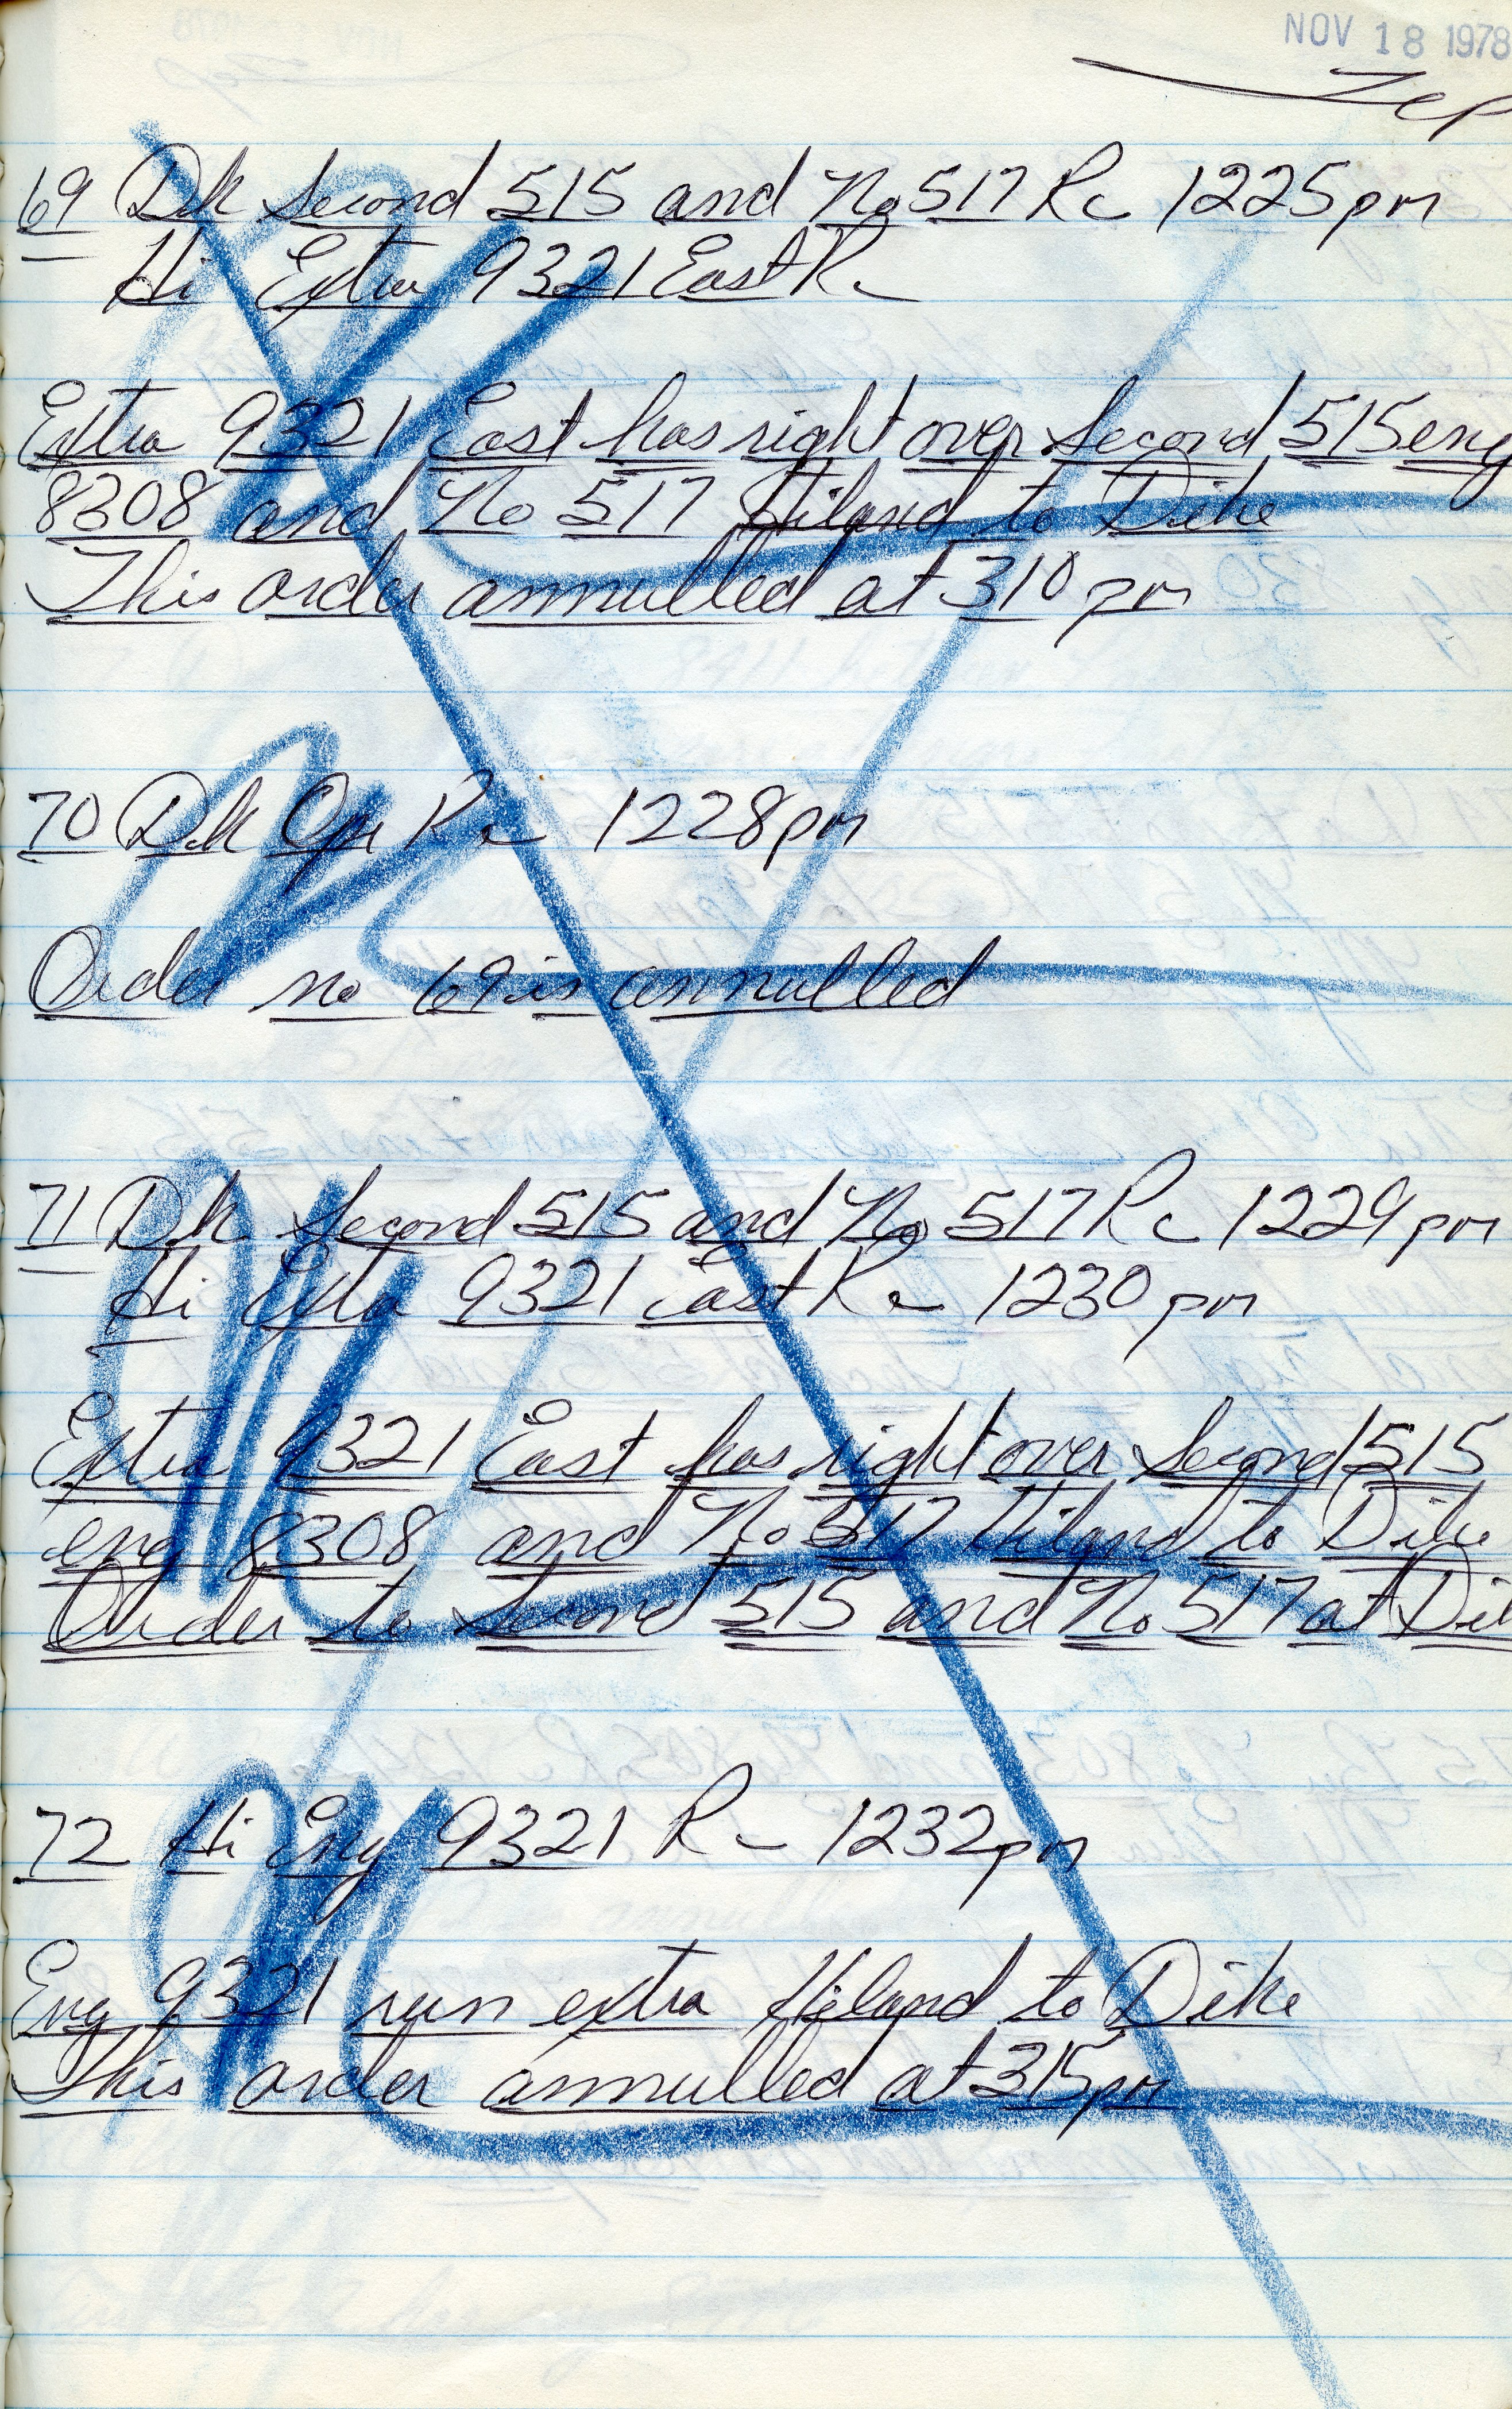 NOV 18 1978
69 Dk Second 515 and No 517 Rc 1225pm
Hi Extra 9321 East Rc
Extra 9321 East has right over Second 515 eng
8308 and No 517 Hiland to Dike
This order annulled at 310 pm
70 Dk Opr Rc 1228pm
Order no 69 is annulled
71 Dk Second 515 and No 517 Rc 1229 pm
Hi Extra 9321 East Rc 1230 pm
Extra 9321 East has right over Second 515
eng 8308 and No 517 Hiland to Dike
Order to Second 515 and No 517 at Di
72 Hi Eng 9321 Rc 1232pm
Eng 9321 run extra Hiland to Dike
This order annulled at 315pm